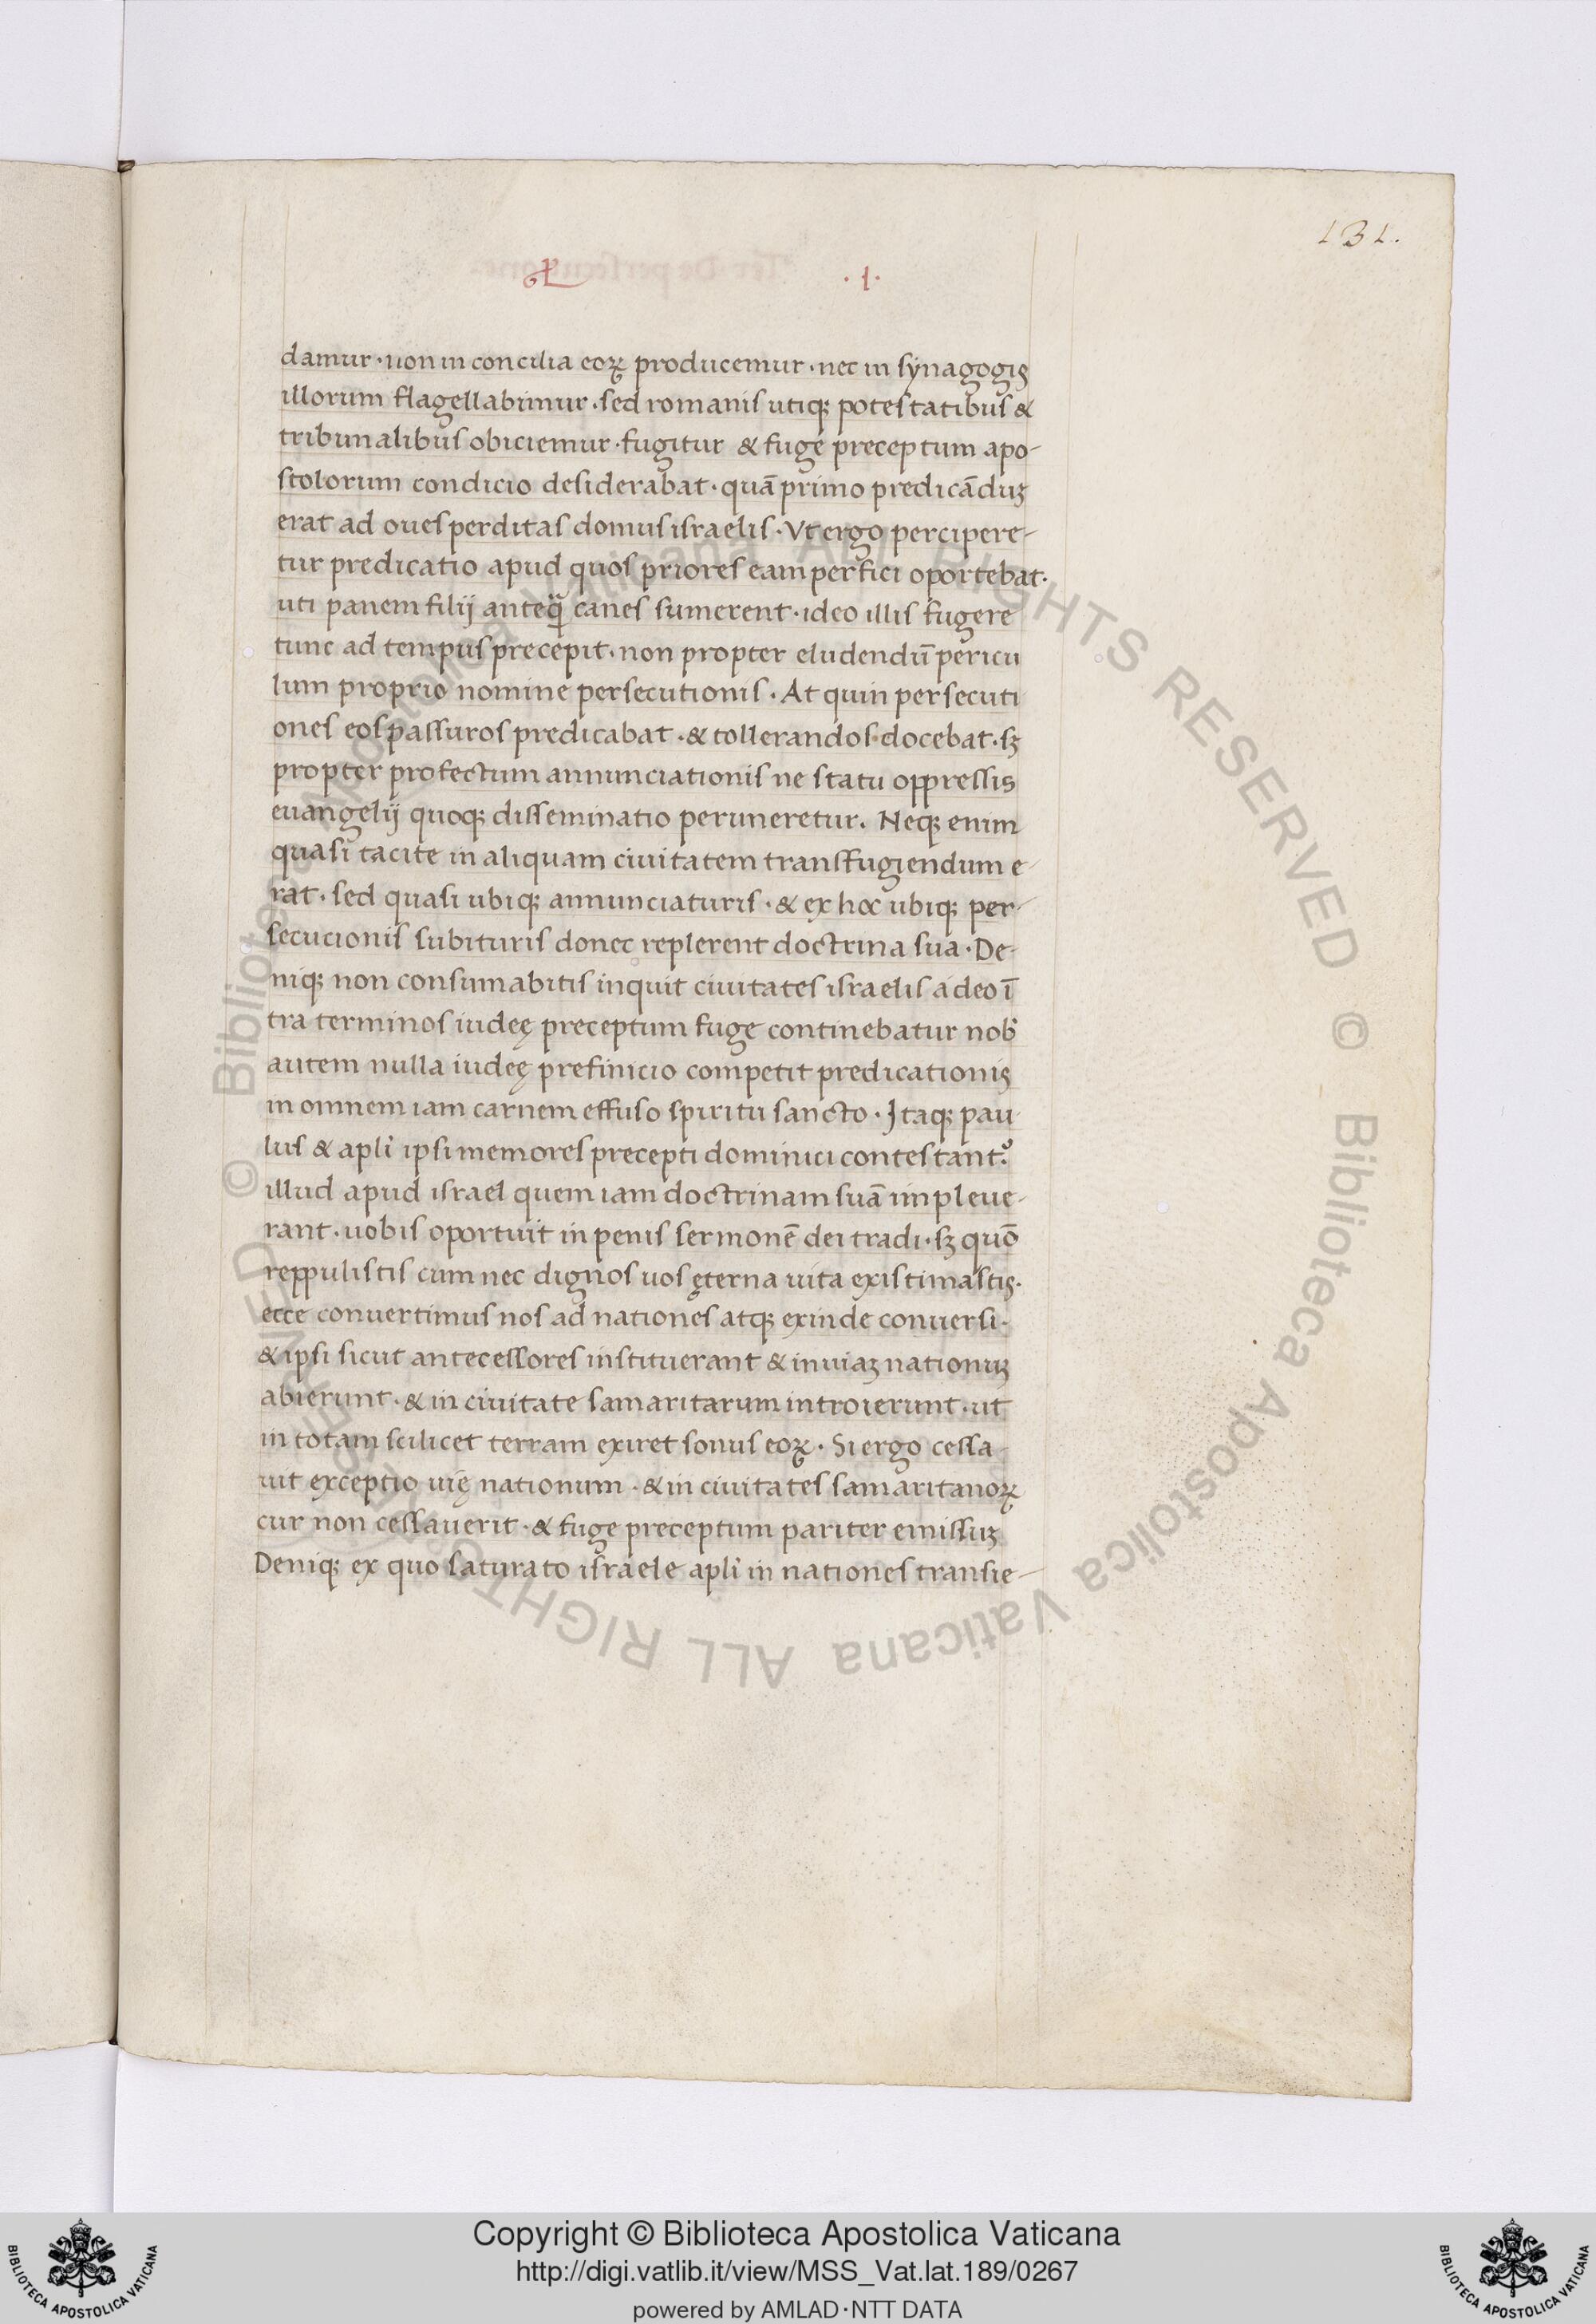 131.
.I.
damur · non in concilia eoꝝ producemur · nec in synagogis
illorum flagellabimur · sed romanis utiqꝫ potestatibus &
tribunalibus obiciemur · fugitur & fuge preceptum apo-
stolorum condicio desiderabat · quā primo predicāduꝫ
erat ad oues perditas domus israelis · Ut ergo percipere-
tur predicatio apud quos priores eam perfici oportebat ·
uti panem filij anteq̄ canes sumerent · ideo illis fugere
tunc ad tempus precepit · non propter eludendū pericu
lum proprio nomine persecutionis . At quin persecuti
ones eos passuros predicabat · & tollerandos docebat · sꝫ
propter profectum annunciationis ne statu oppressis
euangelij quoqꝫ disseminatio peruneretur . Neqꝫ enim
quasi tacite in aliquam ciuitatem transfugiendum e-
rat · sed quasi ubiqꝫ annunciaturis · & ex hoc ubiqꝫ per-
secucionis subituris donec replerent doctrina sua · De-
niqꝫ non consumabitis inquit ciuitates israelis adeo ī
tra terminos iudeę preceptum fuge continebatur nob̕
autem nulla iudeę prefinicio competit predicationis
in omnem iam carnem effuso spiritu sancto · Itaqꝫ pau-
lus & apl̕i ipsi memores precepti dominici contestant᷑ ·
illud apud israel quem iam doctrinam suā impleue-
rant · uobis oportuit in penis sermonē dei tradi · sꝫ quō
reppulistis cum nec dignos uos ęterna uita existimastis ·
ecce conuertimus nos ad nationes atqꝫ exinde conuersi ·
& ipsi sicut antecessores instituerant & in uiaꝫ nationuꝫ
abierunt · & in ciuitate samaritarum introierunt · ut
in totam scilicet terram exiret sonus eoꝝ · Si ergo cessa-
uit exceptio uię nationum · & in ciuitates samaritanoꝝ
cur non cessauerit · & fuge preceptum pariter emissuꝫ
Deniqꝫ ex quo saturato israele apl̕i in nationes transie-
© Biblioteca Apostolica Vaticana ALL RIGHTS RESERVED © Biblioteca Apostolica Vaticana ALL RIGHTS RESERVED
Copyright © Biblioteca Apostolica Vaticana
http://digi.vatlib.it/view/MSS_Vat.lat.189/0267
powered by AMLAD·NTT DATA
BIBLIOTECA APOSTOLICA VATICANA
BIBLIOTECA APOSTOLICA VATICANA